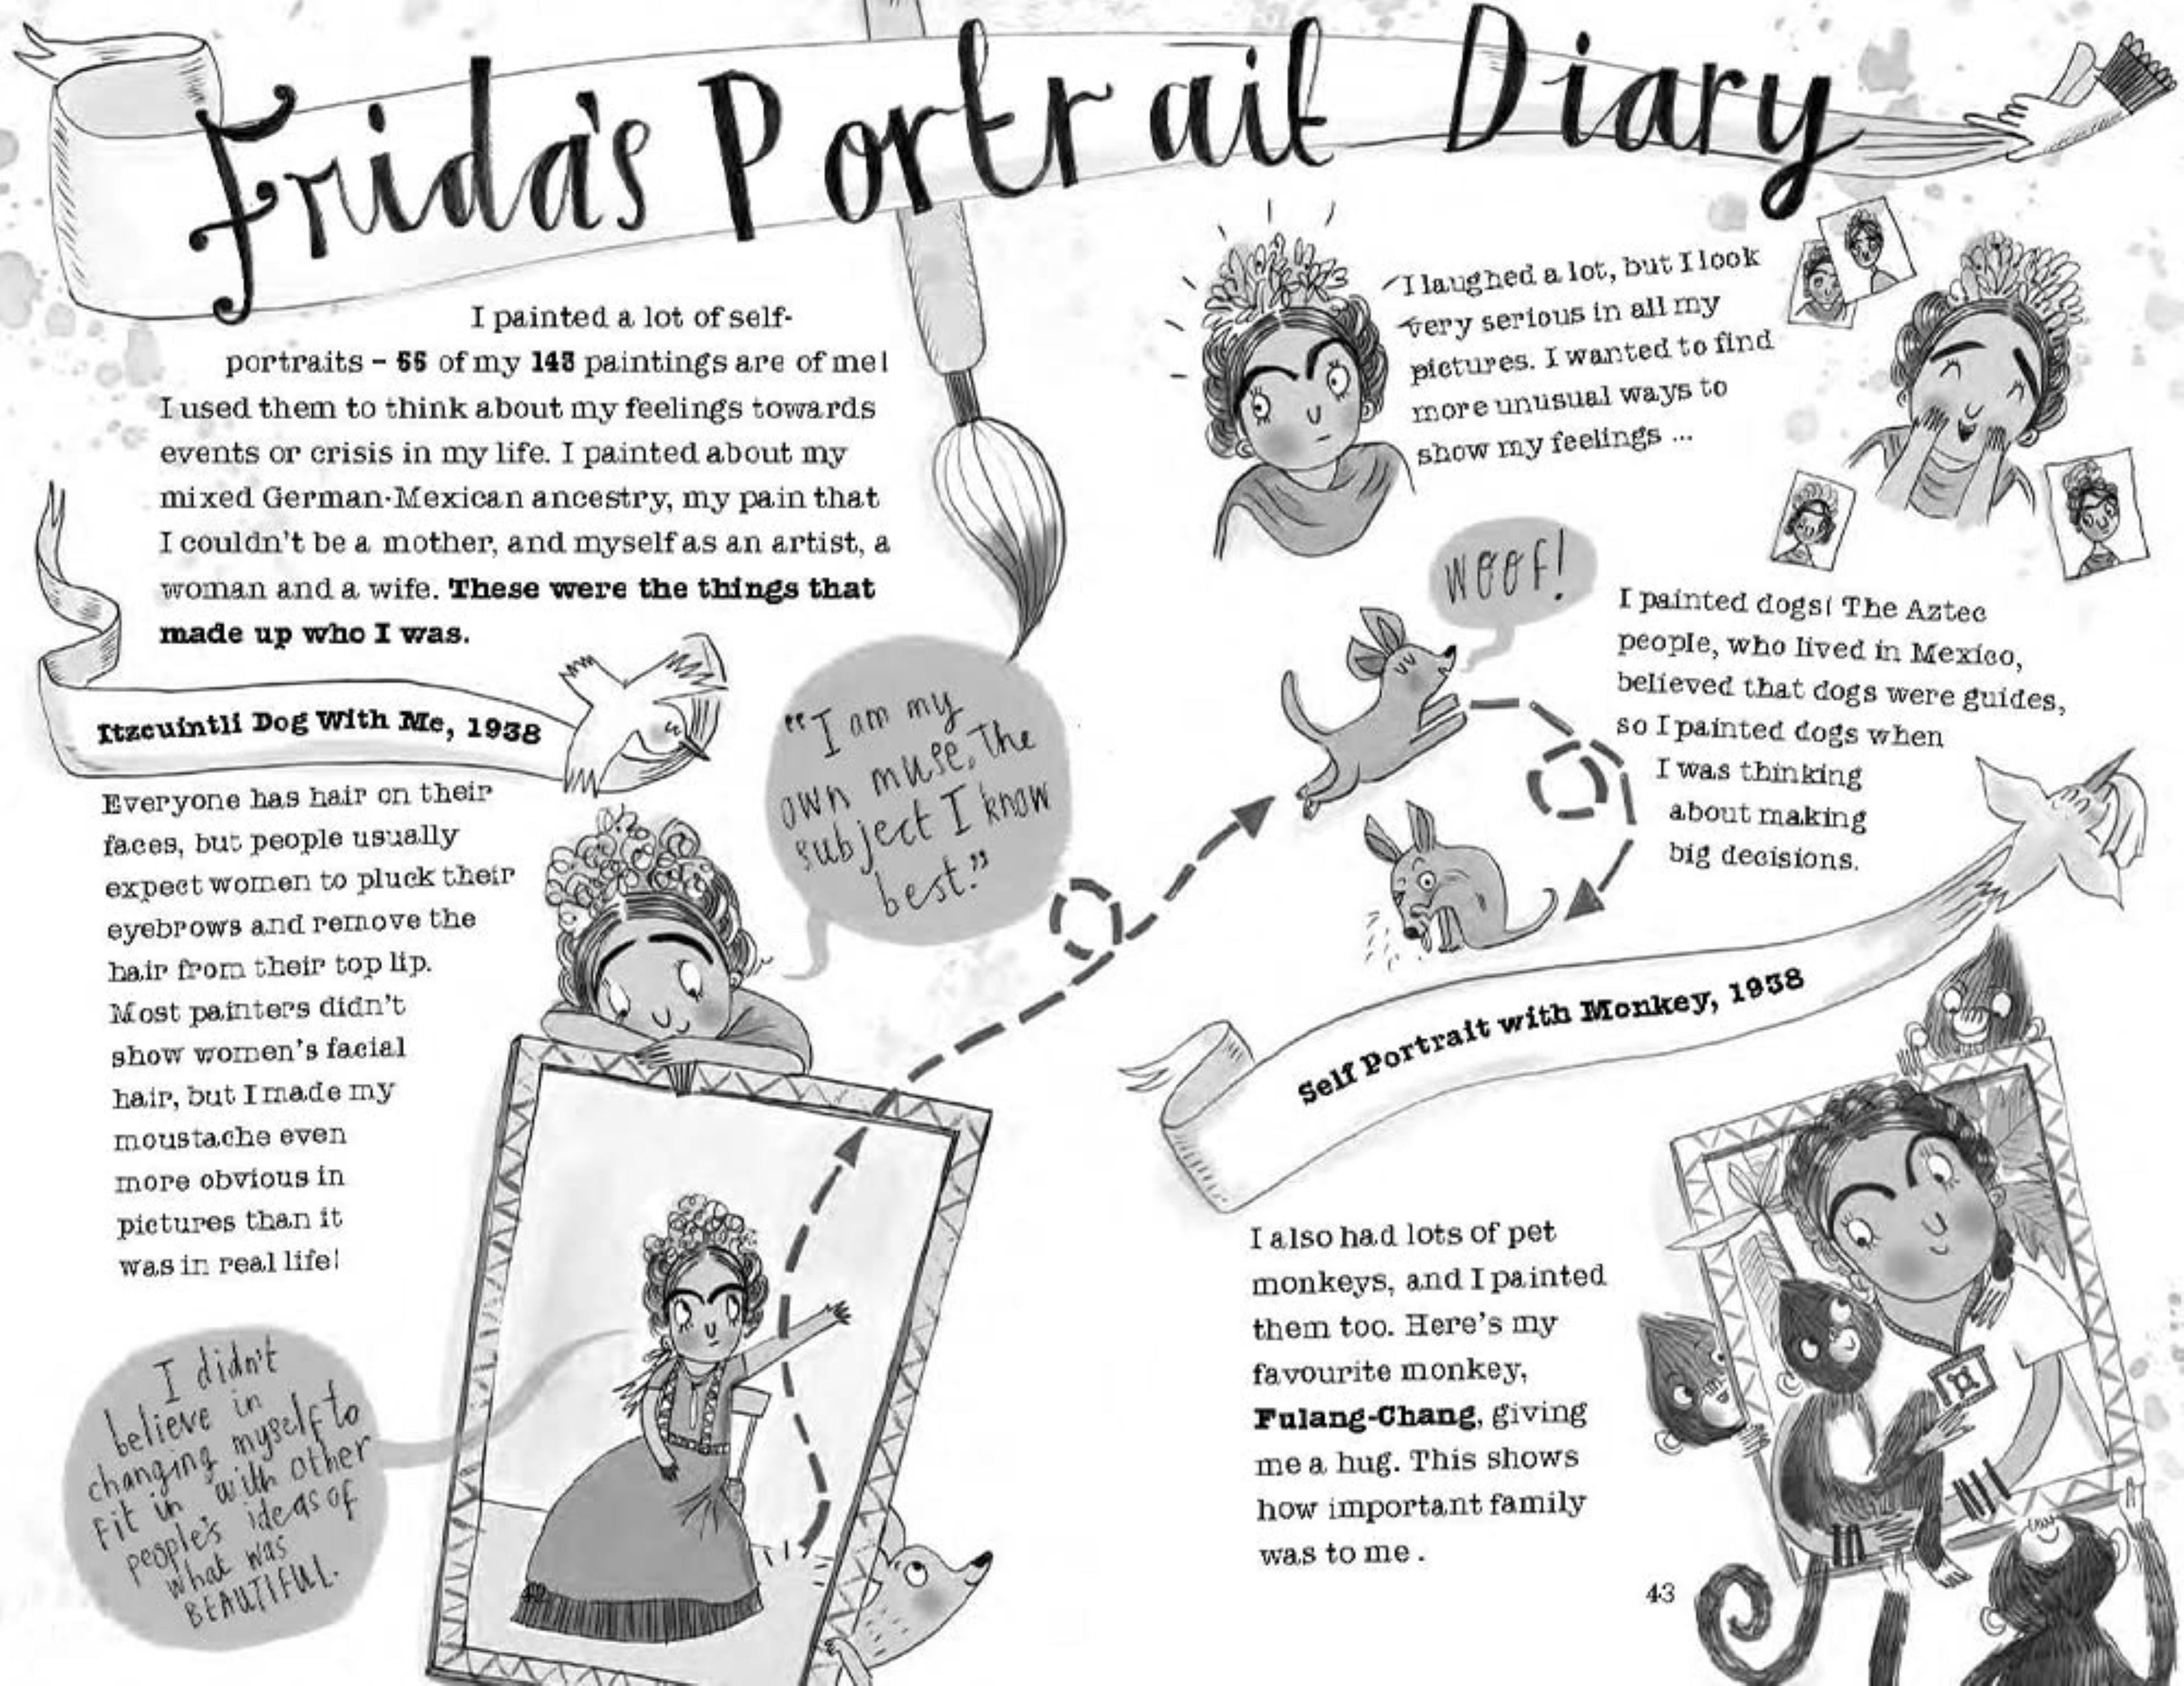 Frida's Portrait Diary
I painted a lot of self-
portraits – 55 of my 143 paintings are of me!
I used them to think about my feelings towards
events or crisis in my life. I painted about my
mixed German-Mexican ancestry, my pain that
I couldn't be a mother, and myself as an artist, a
woman and a wife. These were the things that
made up who I was.
Itzcuintli Dog With Me, 1938
Everyone has hair on their
faces, but people usually
expect women to pluck their
eyebrows and remove the
hair from their top lip.
Most painters didn't
show women's facial
hair, but I made my
moustache even
more obvious in
pictures than it
was in real life!
I didn't
believe in
changing myself to
fit in with other
people's ideas of
what was
BEAUTIFUL.
"I am my
own muse, The
subject I know
best."
I laughed a lot, but I look
very serious in all my
pictures. I wanted to find
more unusual ways to
show my feelings ...
WOOF!
I painted dogs! The Aztec
people, who lived in Mexico,
believed that dogs were guides,
so I painted dogs when
I was thinking
about making
big decisions.
Self Portrait with Monkey, 1938
I also had lots of pet
monkeys, and I painted
them too. Here's my
favourite monkey,
Fulang-Chang, giving
me a hug. This shows
how important family
was to me.
43